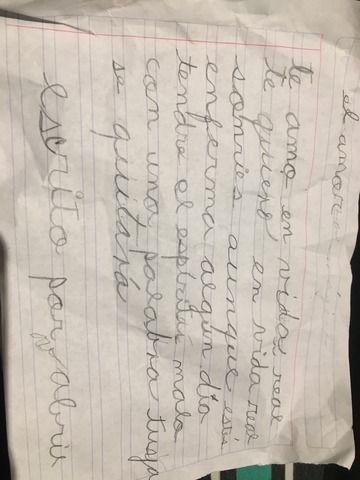 el amor
te amo en vida real
te quiero en vida real
sonries aunque este
enferma algun dia
tendre el espiritu malo
con una palabra tuya
se quitará
escrito por abril